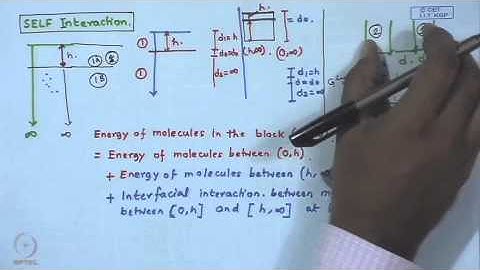 SELF Interaction.
© CET
I.I.T. KGP
h.
1A
1B
∞ ∞
1
h.
1
d₁=h
d₀=d₀
d₂=∞
h.
= d₀.
(h,∞) (0,∞)
d₁=h
d=d₀
d₂=∞
2
Energy of molecules in the block
= Energy of molecules between (0,h).
+ Energy of molecules between (h,∞
+ Interfacial interaction. between
between [0,h] and [h,∞] at
NPTEL